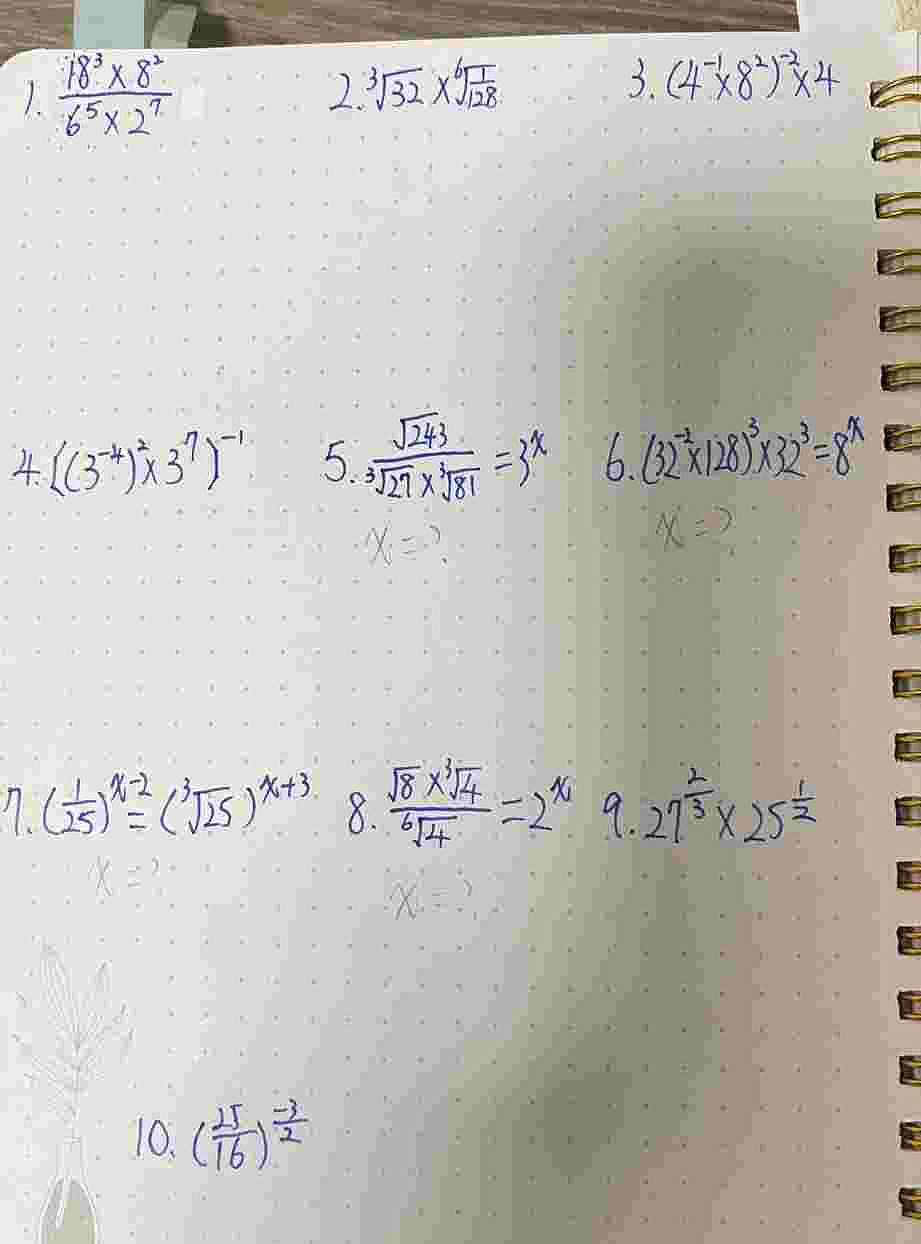 1. (18³ × 8²)/(6⁵ × 2⁷) 2. ³√32 × ⁶√(1/128) 3. (4⁻¹ × 8²)⁻² × 4
4. [(3⁻⁴)² × 3⁷)⁻¹ 5. √243/(³√27 × ³√81) = 3ˣ 6. (32⁻² × 128)³ × 32³ = 8ˣ
x = ? x = ?
7. (1/25)ˣ⁻² = (³√25)ˣ⁺³ 8. (√8 × ³√4)/⁶√4 = 2ˣ 9. 27^(2/3) × 25^(1/2)
x = ? x = ?
10. (25/16)^(-3/2)